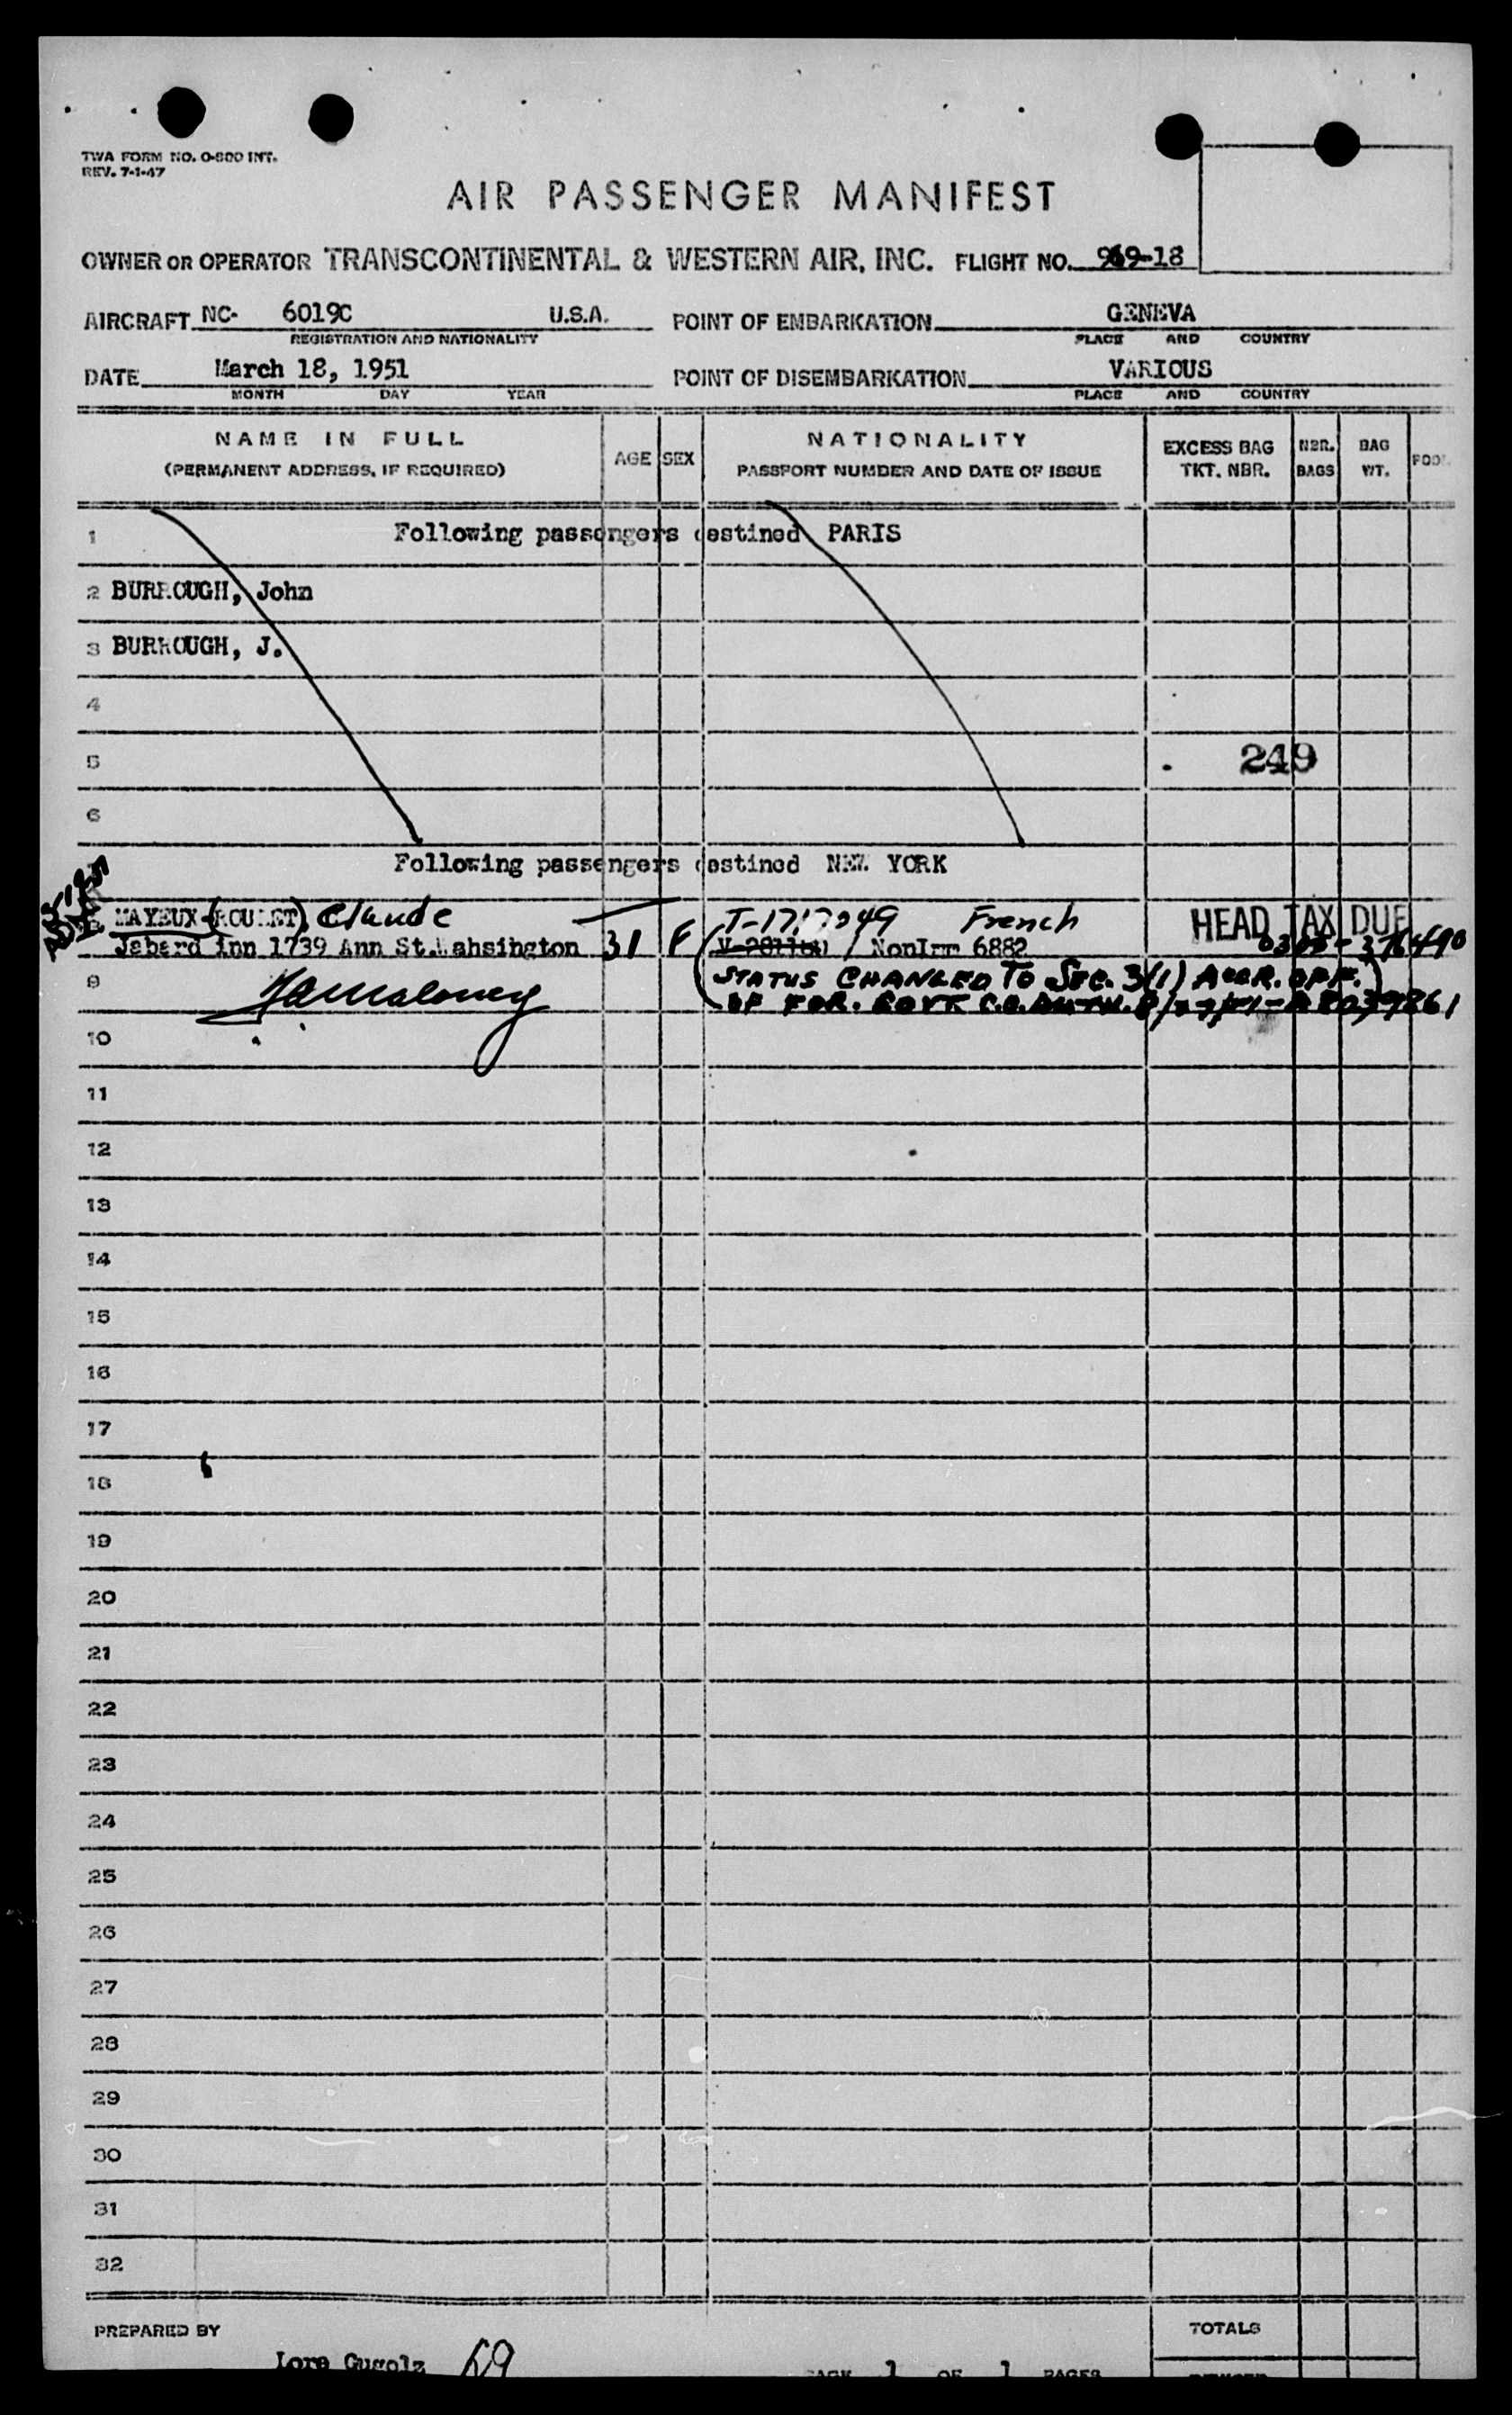 TWA FORM NO. O-800 INT.
REV. 7-1-47
AIR PASSENGER MANIFEST
OWNER OR OPERATOR TRANSCONTINENTAL & WESTERN AIR, INC. FLIGHT NO. 969-18
AIRCRAFT NC- 6019C U.S.A. POINT OF EMBARKATION GENEVA
REGISTRATION AND NATIONALITY PLACE AND COUNTRY
DATE March 18, 1951 POINT OF DISEMBARKATION VARIOUS
MONTH DAY YEAR PLACE AND COUNTRY
NAME IN FULL AGE SEX NATIONALITY EXCESS BAG NBR. BAG
(PERMANENT ADDRESS, IF REQUIRED) PASSPORT NUMBER AND DATE OF ISSUE TKT. NBR. BAGS WT.
1 Following passengers destined PARIS
2 BURROUGH, John
3 BURROUGH, J.
4
5 249
6
Following passengers destined NEW YORK
MAYEUX-(ROULET) Claude French HEAD TAX DUE
Jabard inn 1739 Ann St.Wahsihgton 31 F NonImm 6882
9 STATUS CHANGED TO SEC. 3(1) ACCR. OFF.
OF FOR. GOVT C.O.
10
11
12
13
14
15
16
17
18
19
20
21
22
23
24
25
26
27
28
29
30
31
32
PREPARED BY TOTALS
Lore Gugolz 69 PAGE 1 OF 1 PAGES